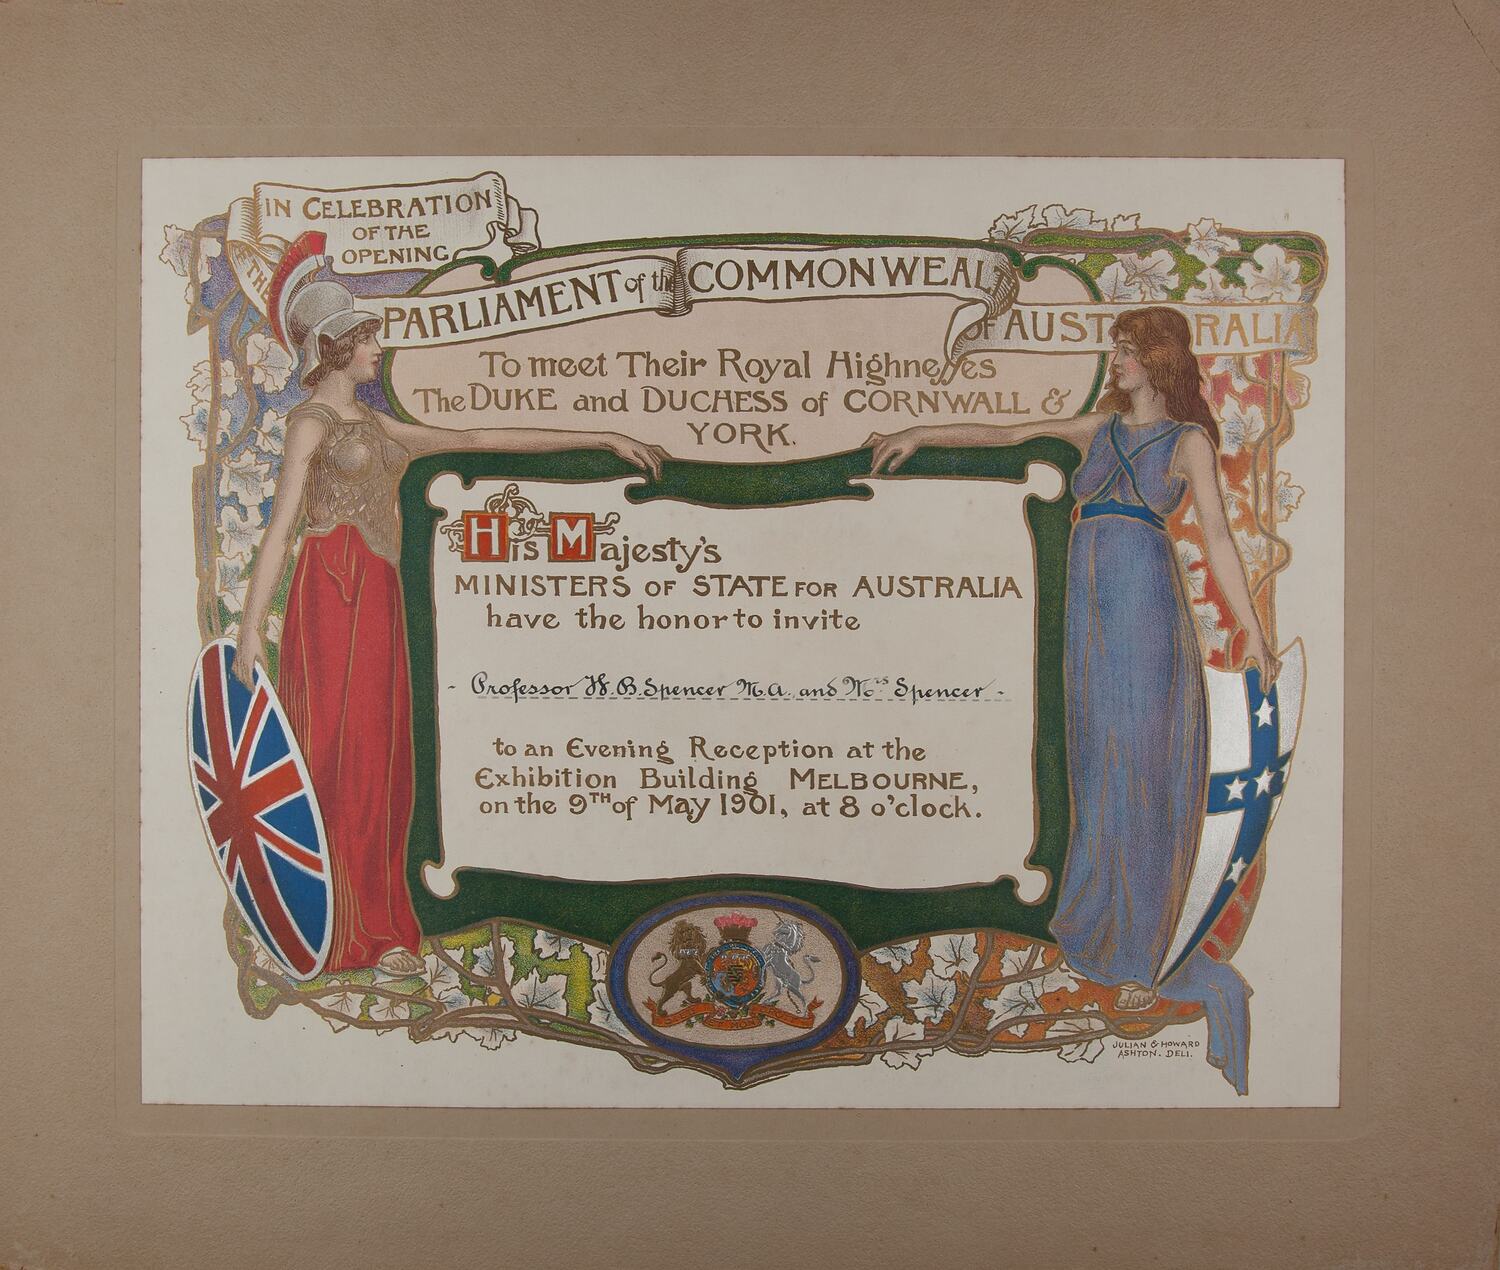 IN CELEBRATION
OF THE
OPENING
OF THE
PARLIAMENT of the COMMONWEALT
OF AUSTRALIA
To meet Their Royal Highnesses
The DUKE and DUCHESS of CORNWALL &
YORK.
His Majesty's
MINISTERS OF STATE FOR AUSTRALIA
have the honor to invite
- Professor W. B. Spencer M.A. and Mrs Spencer -
to an Evening Reception at the
Exhibition Building MELBOURNE,
on the 9TH of May 1901, at 8 o'clock.
JULIAN & HOWARD
ASHTON. DELI.